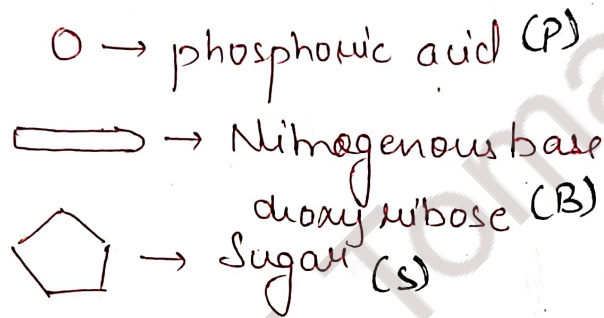 O → phosphoric acid (P)
→ Nitrogenous base
deoxy ribose (B)
→ Sugar (S)
Toma